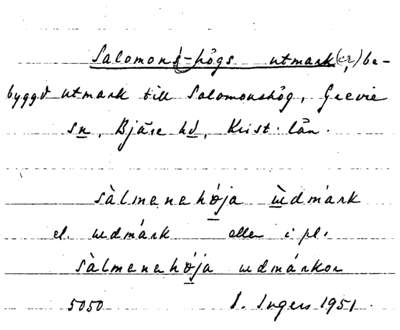 Salomons-högs utmark(er) be-
byggd utmark till Salomonshög, Grevie
sn, Bjäre hd, Krist. län.
sàlmenehøja ùdmárk
el. udmárk eller i pl.
sàlmenehøja udmárkor
5050 I. Ingers 1951.